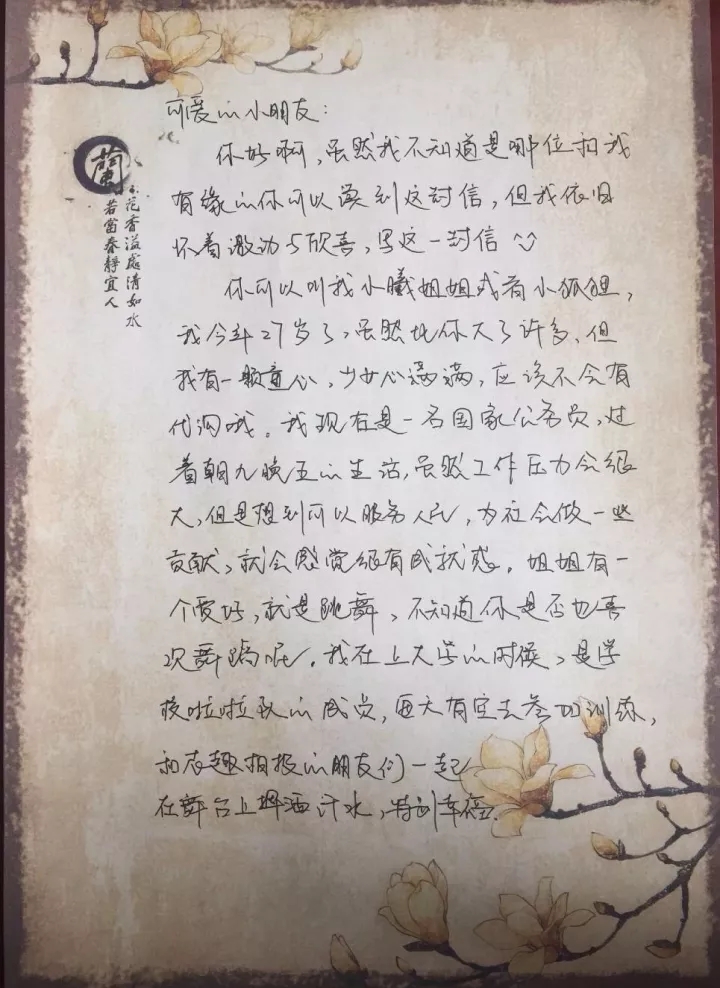 蘭
花香溢處清如水
若當春靜宜人
可爱的小朋友:
你好啊,虽然我不知道是哪位和我
有缘的你可以读到这封信,但我依旧
怀着激动与欣喜,写这一封信
你可以叫我小曦姐姐或者小狐狸,
我今年27岁了,虽然比你大了许多,但
我有一颗童心,少女心满满,应该不会有
代沟哦。我现在是一名国家公务员,过
着朝九晚五的生活,虽然工作压力会很
大,但是想到可以服务人民,为社会做一些
贡献,就会感觉很有成就感。姐姐有一
个爱好,就是跳舞,不知道你是否也喜
欢舞蹈呢。我在上大学的时候,是学
校啦啦队的成员,每天有空去参加训练,
和志趣相投的朋友们一起
在舞台上挥洒汗水,特别幸福.